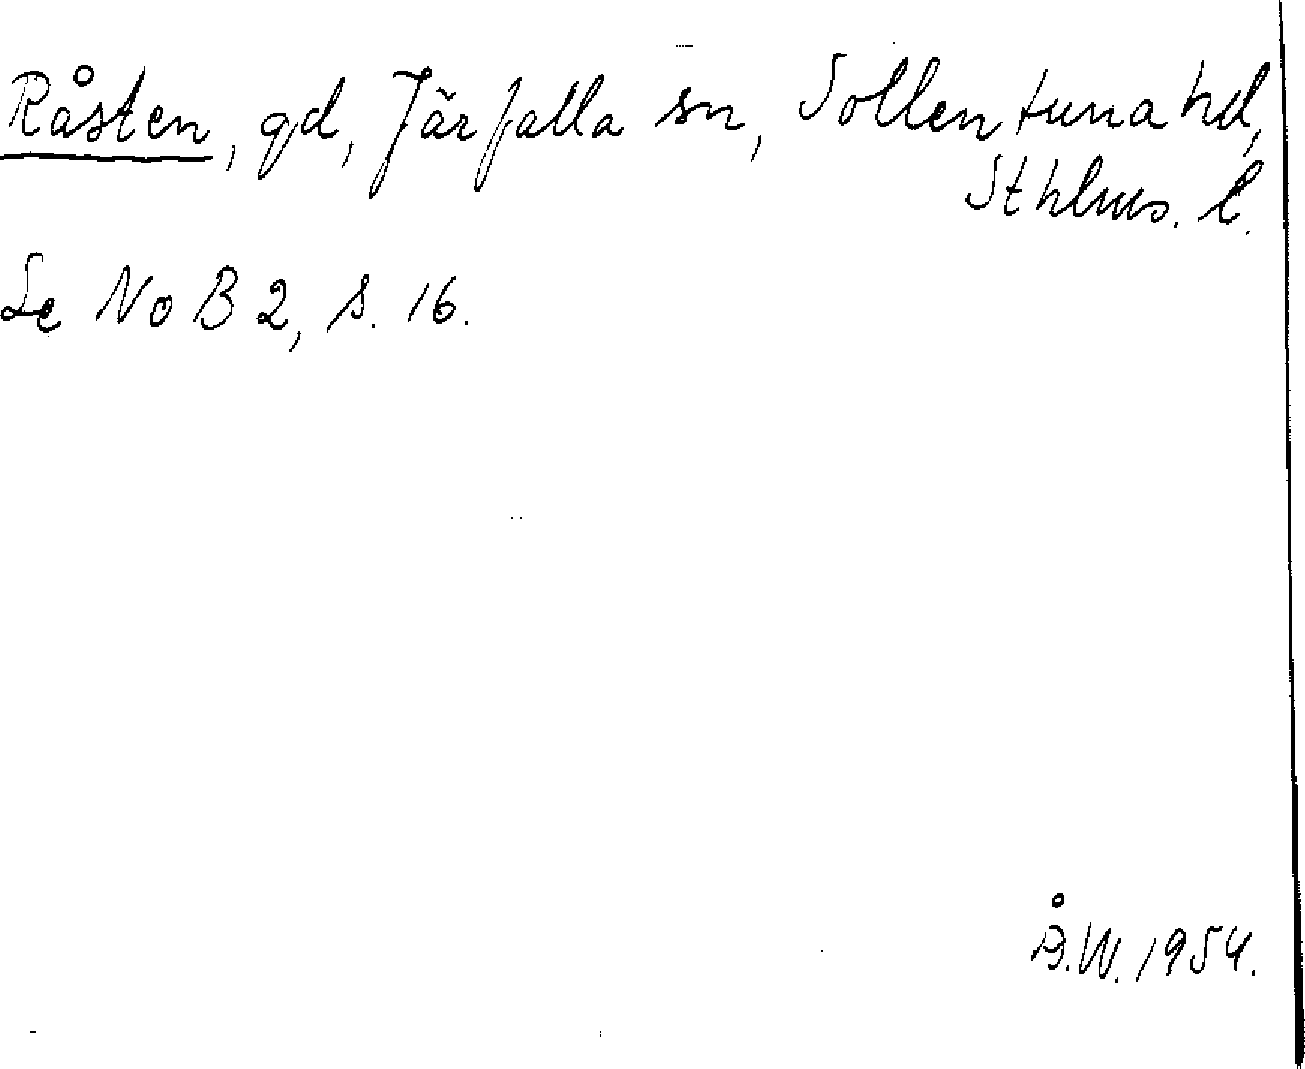 Råsten, gd, Järfalla sn, Sollentuna hd,
Sthlms. l.
Se NoB 2, s. 16.
Å.W. 1954.